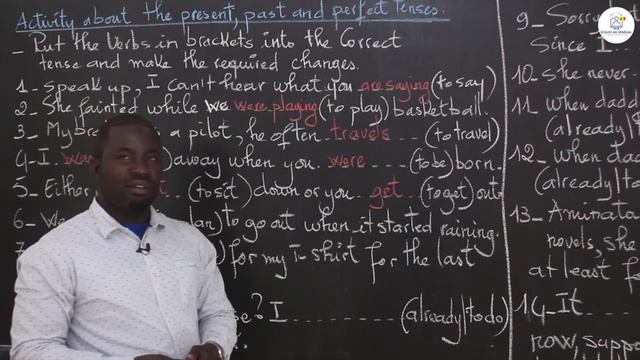 Activity about the present, past and perfect tenses.
- Put the Verbs in brackets into the Correct
tense and make the required changes.
1- speak up, I can't hear what you are saying (to say)
2- She fainted while we were playing (to play) basketball.
3- My a pilot, he often travels (to travel)
4- I. away when you were (to be) born.
5- Either (to sit) down or you get (to get) out
6- We to go out when it started raining.
for my T-shirt for the last
? I (already/to do)
9- Sorry
Since I
10- she never
11- when dadd
(already/
12- when dad
(already/to
13- Animata
novels, she
at least f
14- It
now, suppo